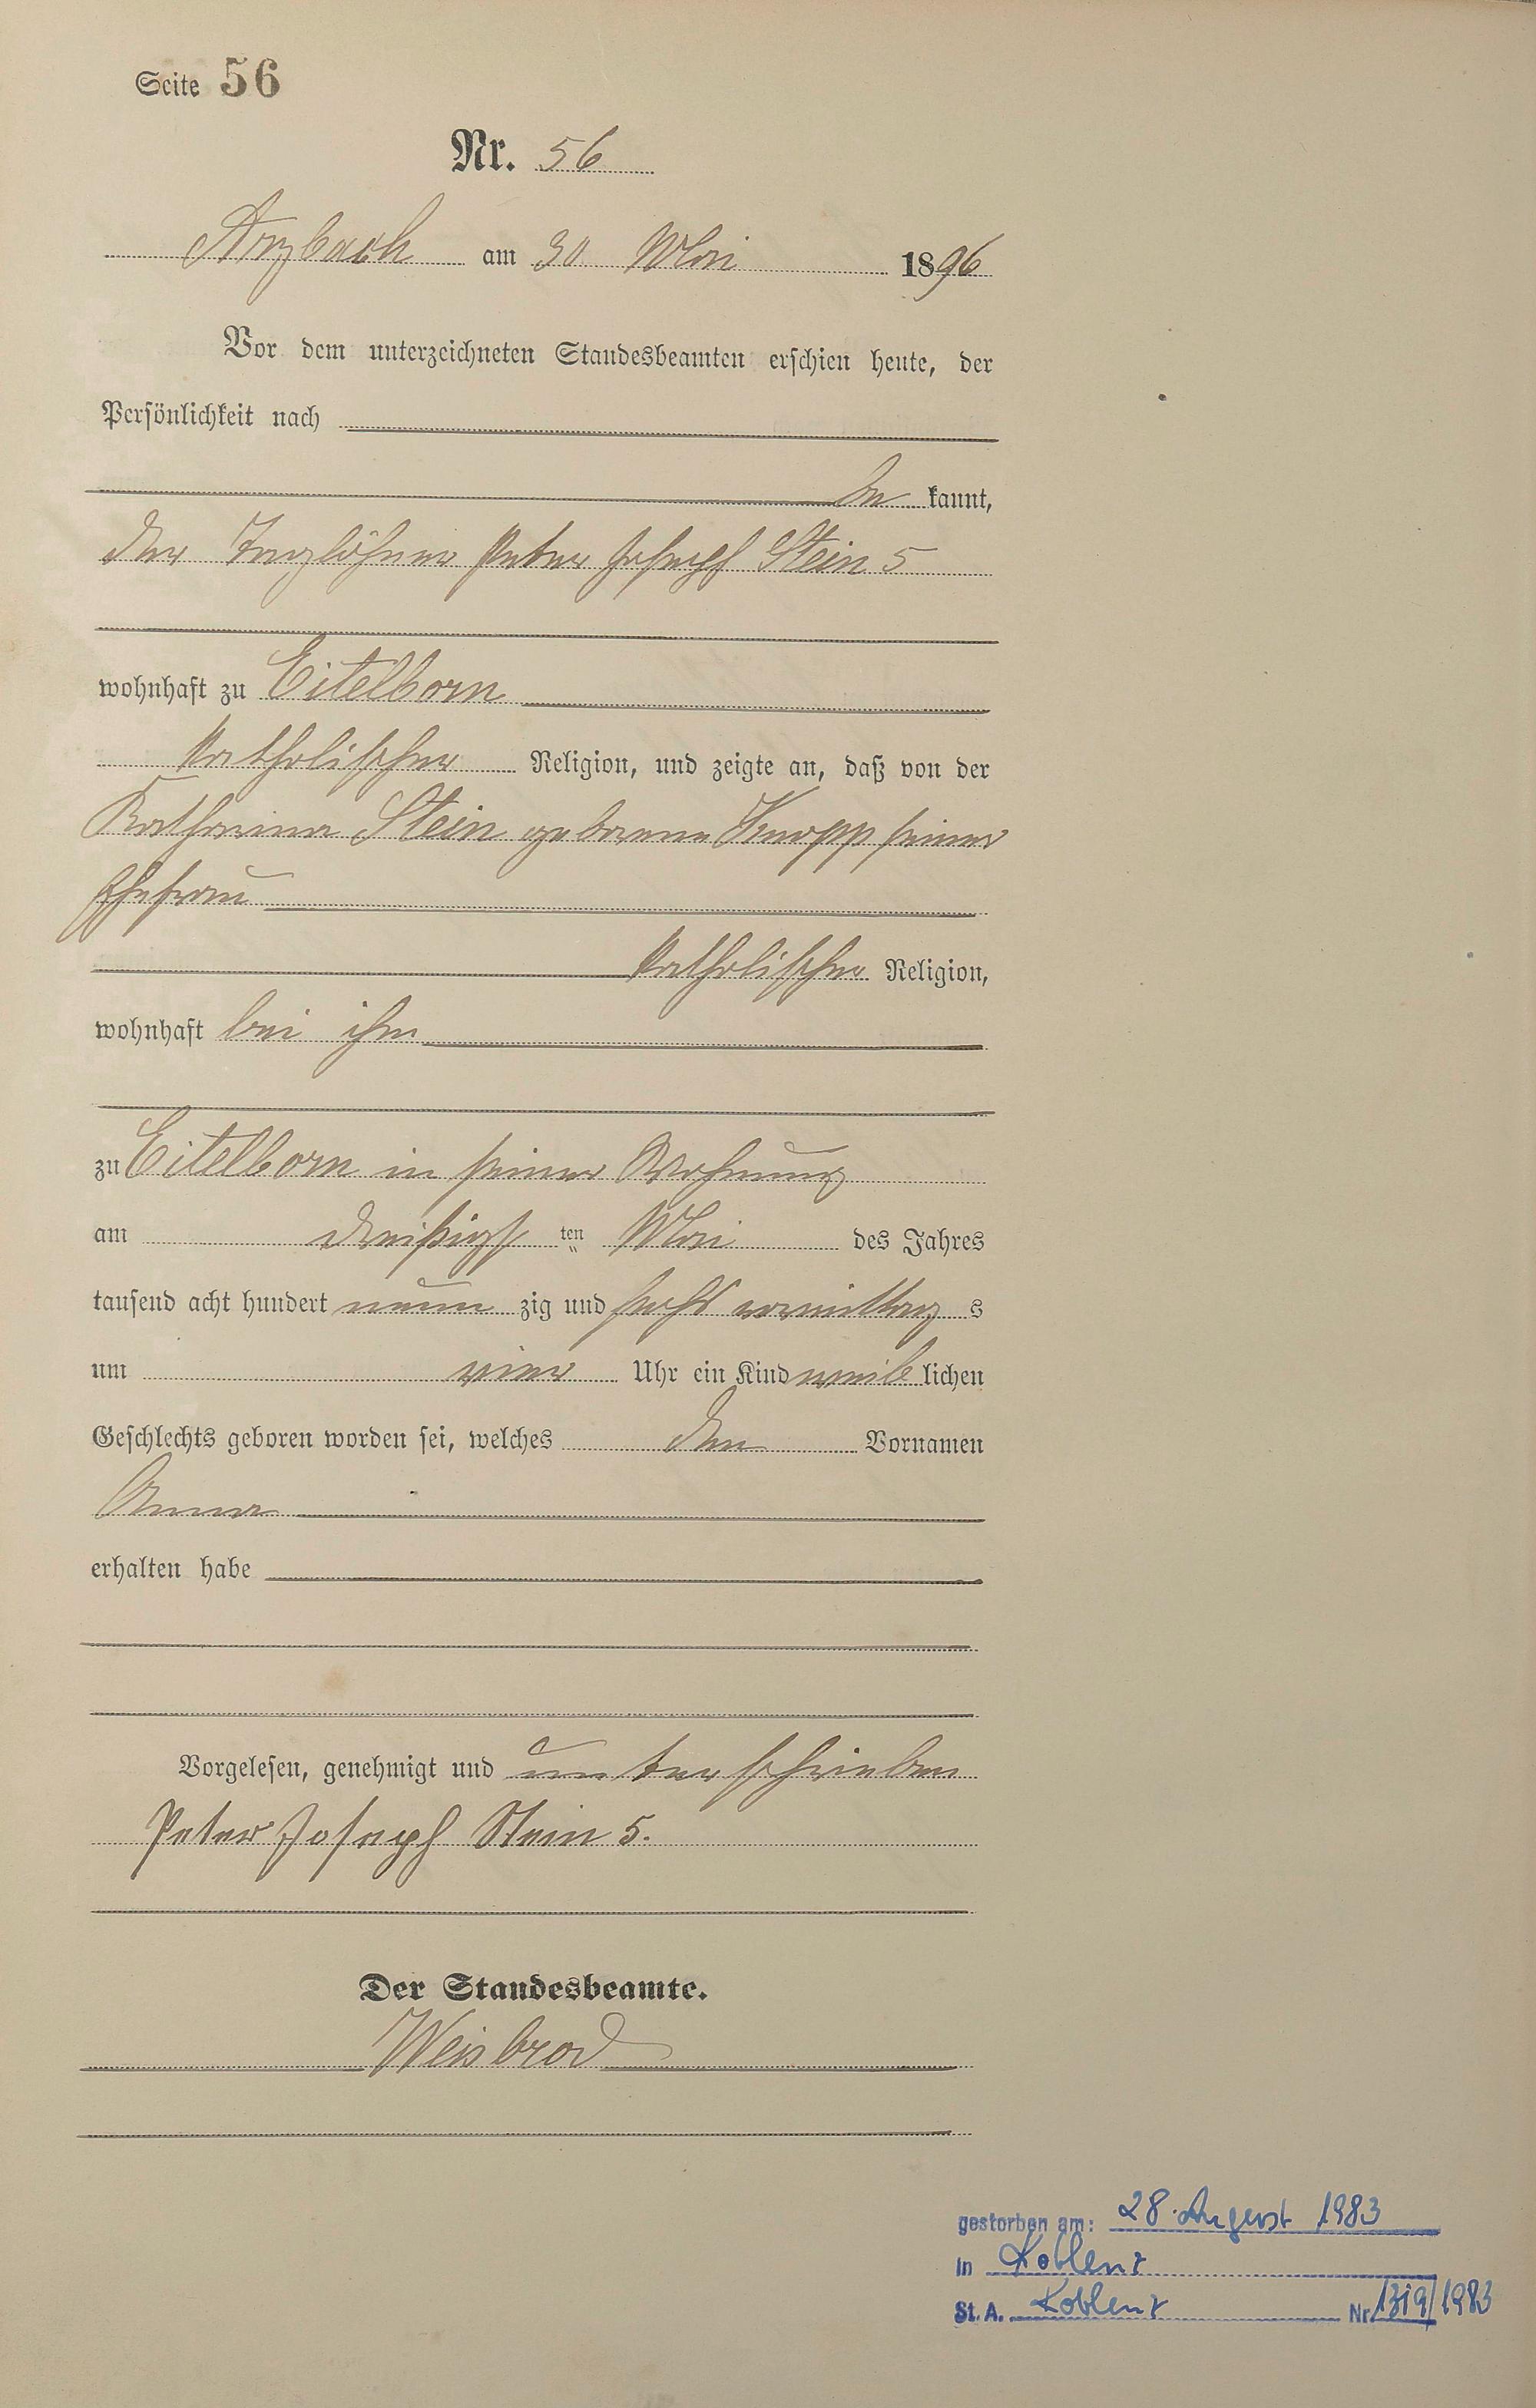 Seite 56
Nr. 56
Arzbach am 30 Mai 1896
Vor dem unterzeichneten Standesbeamten erschien heute, der
Persönlichkeit nach
be kannt,
der Taglöhner Peter Joseph Stein 5
wohnhaft zu Eitelborn
katholischer Religion, und zeigte an, daß von der
Katharina Stein geborene Knopp seiner
Ehefrau
katholischer Religion,
wohnhaft bei ihm
zu Eitelborn in seiner Wohnung
am dreißigsten Mai des Jahres
tausend acht hundert neun zig und sechs vormittag s
um vier Uhr ein Kind weib lichen
Geschlechts geboren worden sei, welches den Vornamen
Anna
erhalten habe
Vorgelesen, genehmigt und unterschrieben
Peter Joseph Stein 5.
Der Standesbeamte.
Weisbrod
gestorben am: 28. August 1983
in Koblenz
St. A. Koblenz Nr. 1319/1983